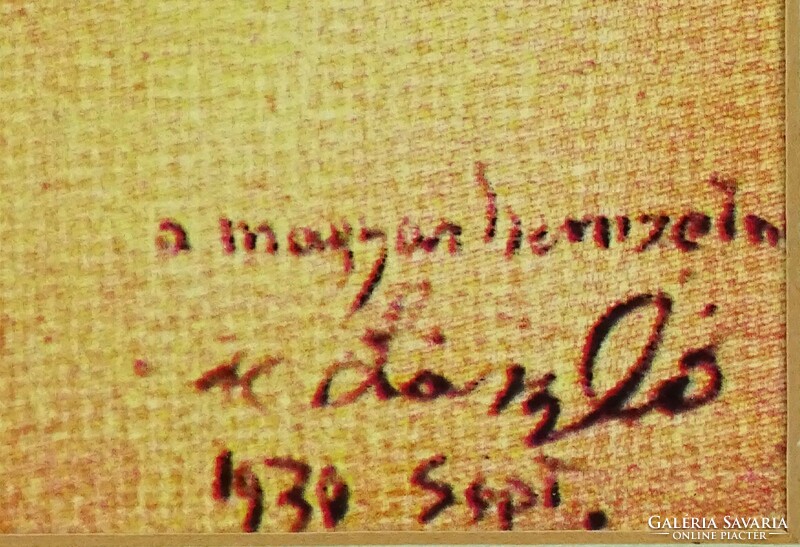 a magyar nemzetn
László
1930 Sept.
GALÉRIA SAVARIA
ONLINE PIACTÉR